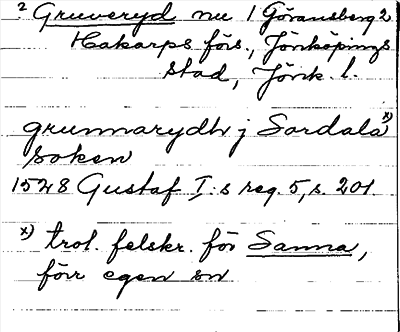 2 Gruveryd nu 1 Göransberg 2
Hakarps förs., Jönköpings
stad, Jönk. l.
grunnarydh j Sordala x)
soken
1528 Gustaf I:s reg. 5, s. 201
x) trol. felskr. för Sanna,
förr egen sn